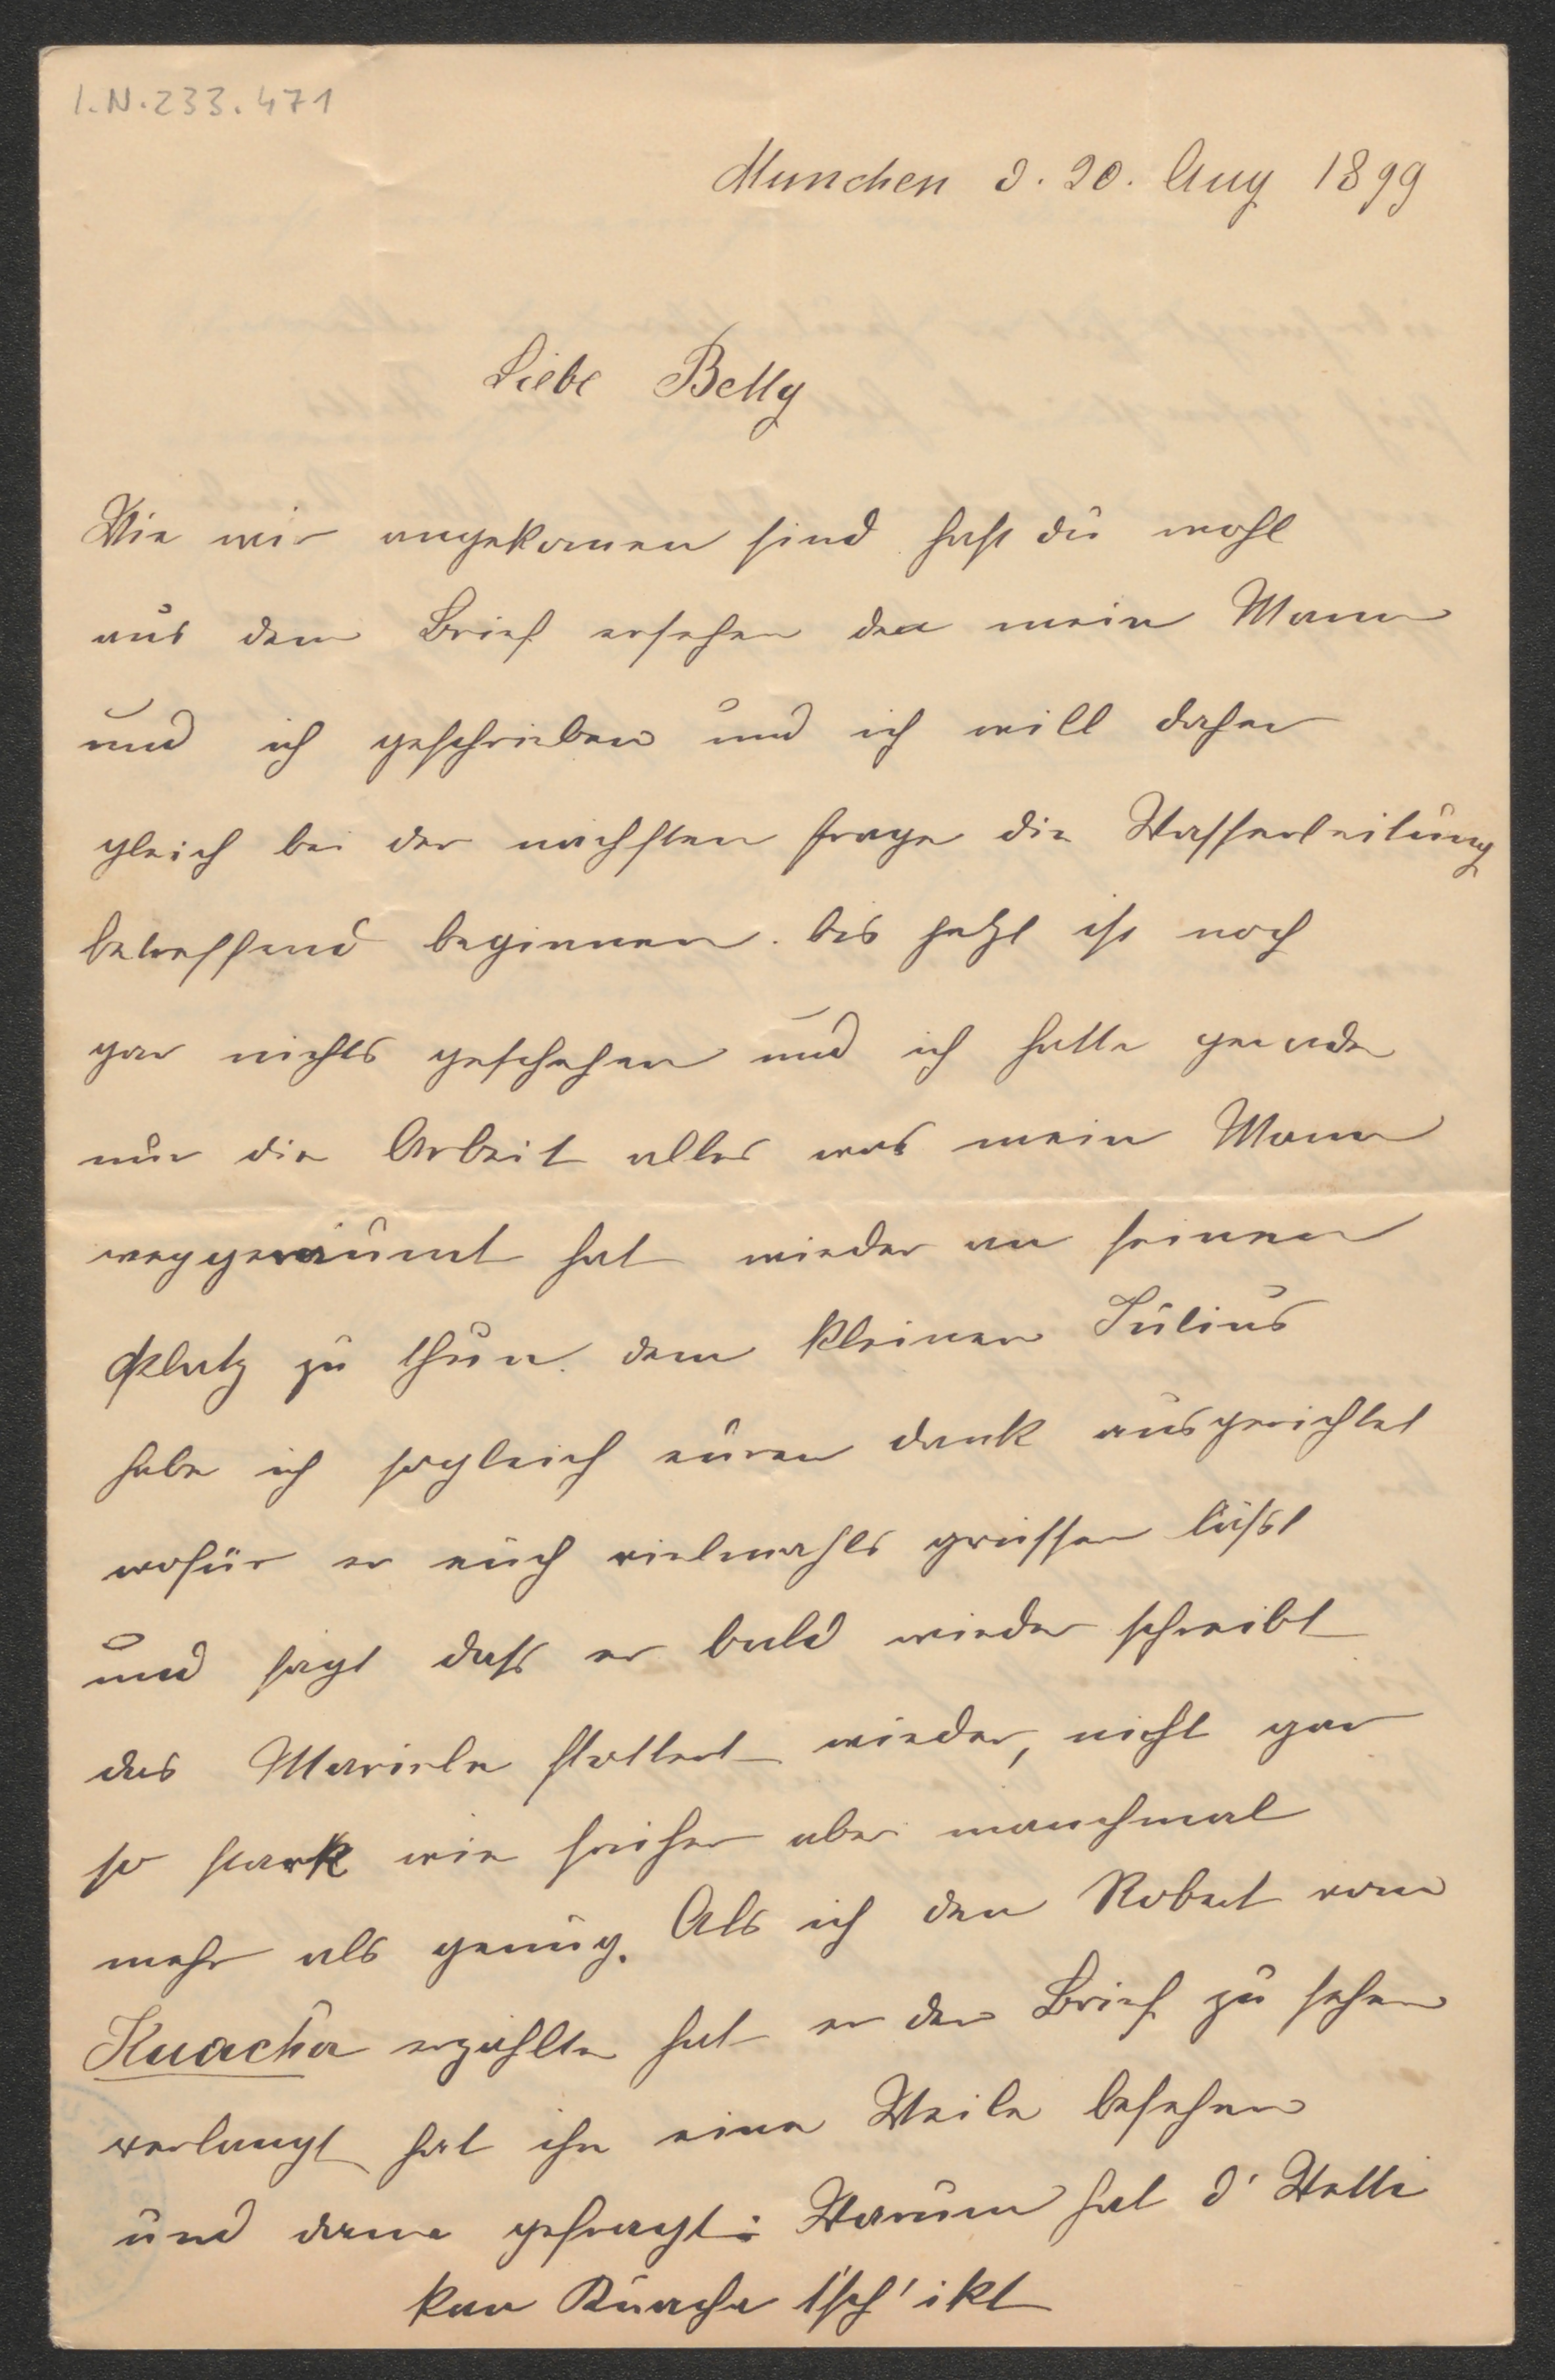 I.N. 233.471
Munchen d. 20. Aug 1899
Liebe Betty
Wie wir angekomen sind hast du wohl
aus dem Brief ersehen den mein Mann
und ich geschrieben und ich will daher
gleich bei der nächsten Frage die Wasserleitung
betreffend beginnen. bis jetzt ist noch
gar nichts geschehen und ich hatte gerade
nur die Arbeit alles was mein Mann
weggeräumt hat wieder an seinen
Platz zu thun. dem kleinen Julius
habe ich sogleich euren dank ausgerichtet
wofür er euch vielmahls grüssen lässt
und sagt dass er bald wieder schreibt
das Mariele stottert wieder, nicht gar
so stark wie früher aber manchmal
mehr als genug. Als ich den Robert vom
erzählte hat er den Brief zu sehen
verlangt hat ihn eine Weile besehen
und dann gefragt: Warum hat d' Wetti
kan tsch'ikt